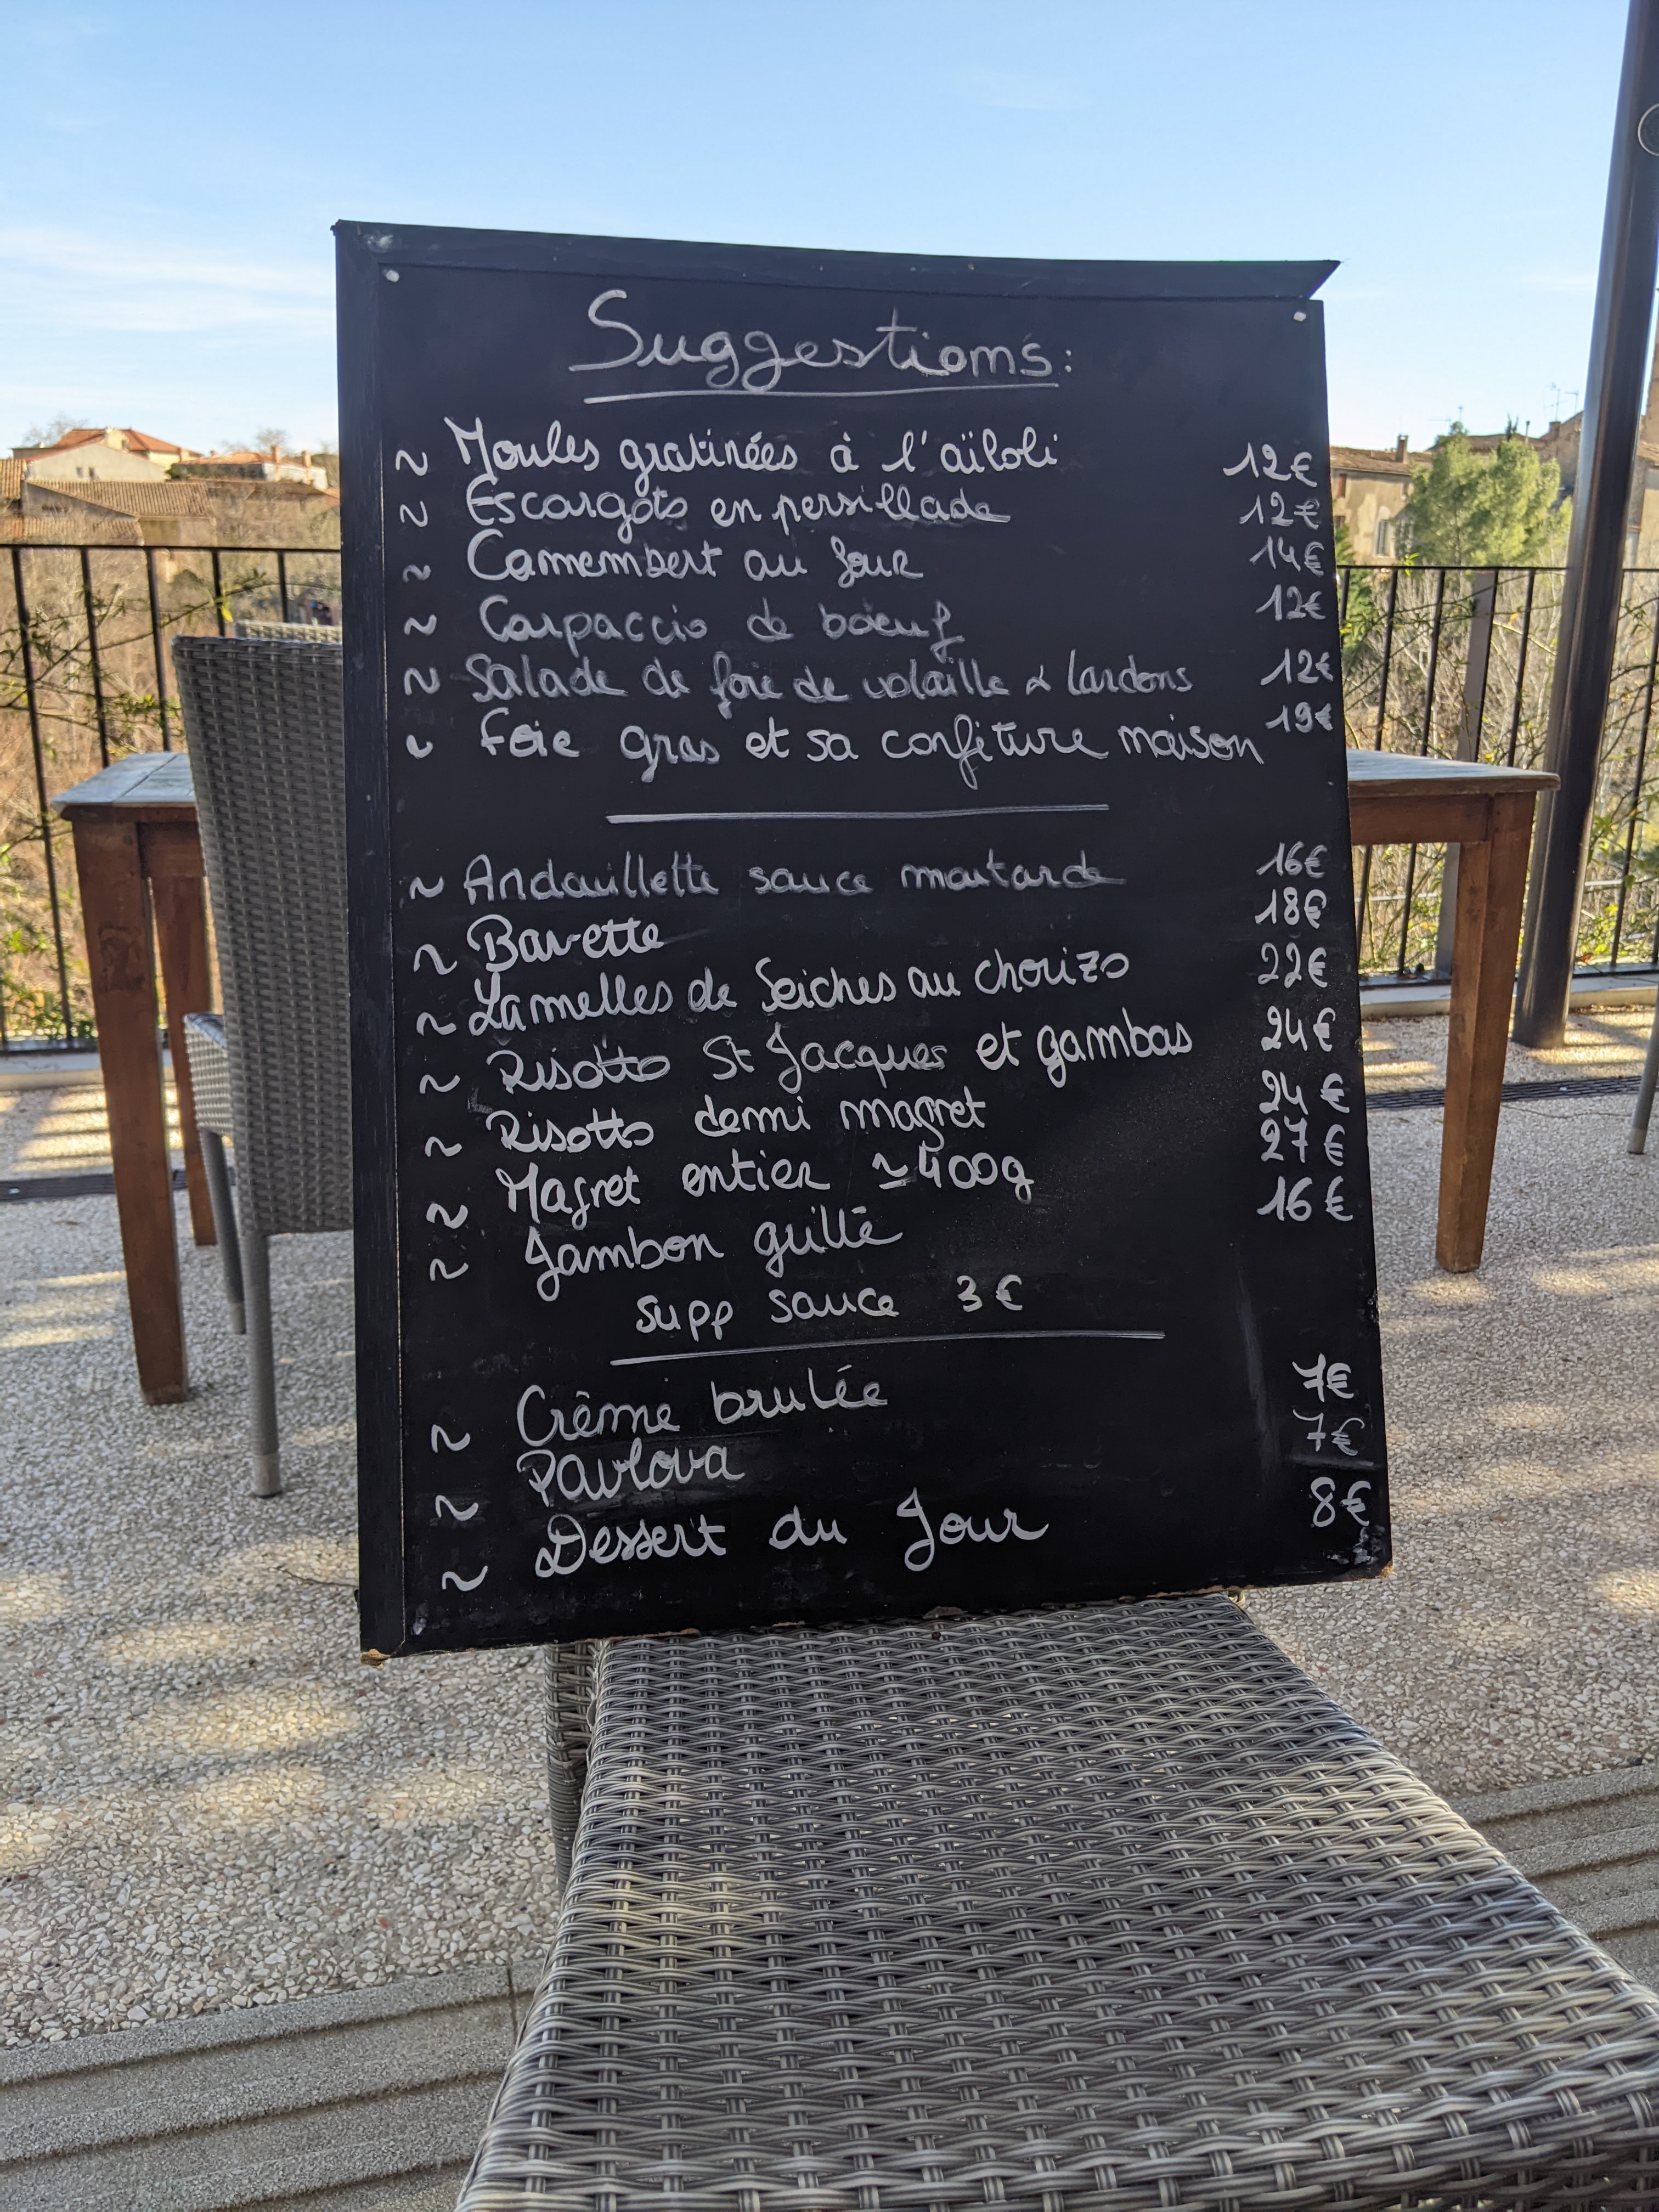 Suggestions:
~ Moules gratinées à l'aïloli 12€
~ Escargots en persillade 12€
~ Camembert au four 14€
~ Carpaccio de boeuf 12€
~ Salade de foie de volaille & lardons 12€
~ Foie gras et sa confiture maison 19€
~ Andouillette sauce moutarde 16€
~ Bavette 18€
~ Lamelles de Seiches au chorizo 22€
~ Risotto St Jacques et gambas 24€
~ Risotto demi magret 24€
~ Magret entier ~400g 27€
~ Jambon grillé 16€
supp sauce 3€
~ Crème brulée 7€
~ Pavlova 7€
~ Dessert du Jour 8€